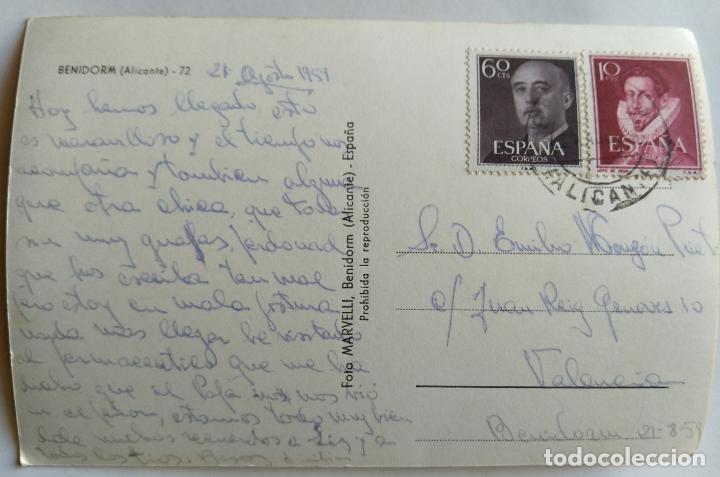 BENIDORM (Alicante) - 72
21 Agosto 1959
Hoy hemos llegado, esto
es maravilloso y el tiempo nos
acompaña y tambien alguna
que otra chica, que todas
son muy guapas, perdonad
que os escriba tan mal
pero estoy en mala postura
nada más llegar he visitado
al farmaceutico que me ha
dicho que el Papá nos vió
en el peñon, estamos todos muy bien
muchos recuerdos a y a
todos los tios. Besos Emilio
Foto MARVELLI, Benidorm (Alicante) - España
Prohibida la reproducción
60 CTS
ESPAÑA
CORREOS
10 CTS
ESPAÑA
ALICANTE
Sr. D. Emilio Monzón
c/ Juan Reig Genoves 10
Valencia
Benidorm 21-8-59
todocoleccion